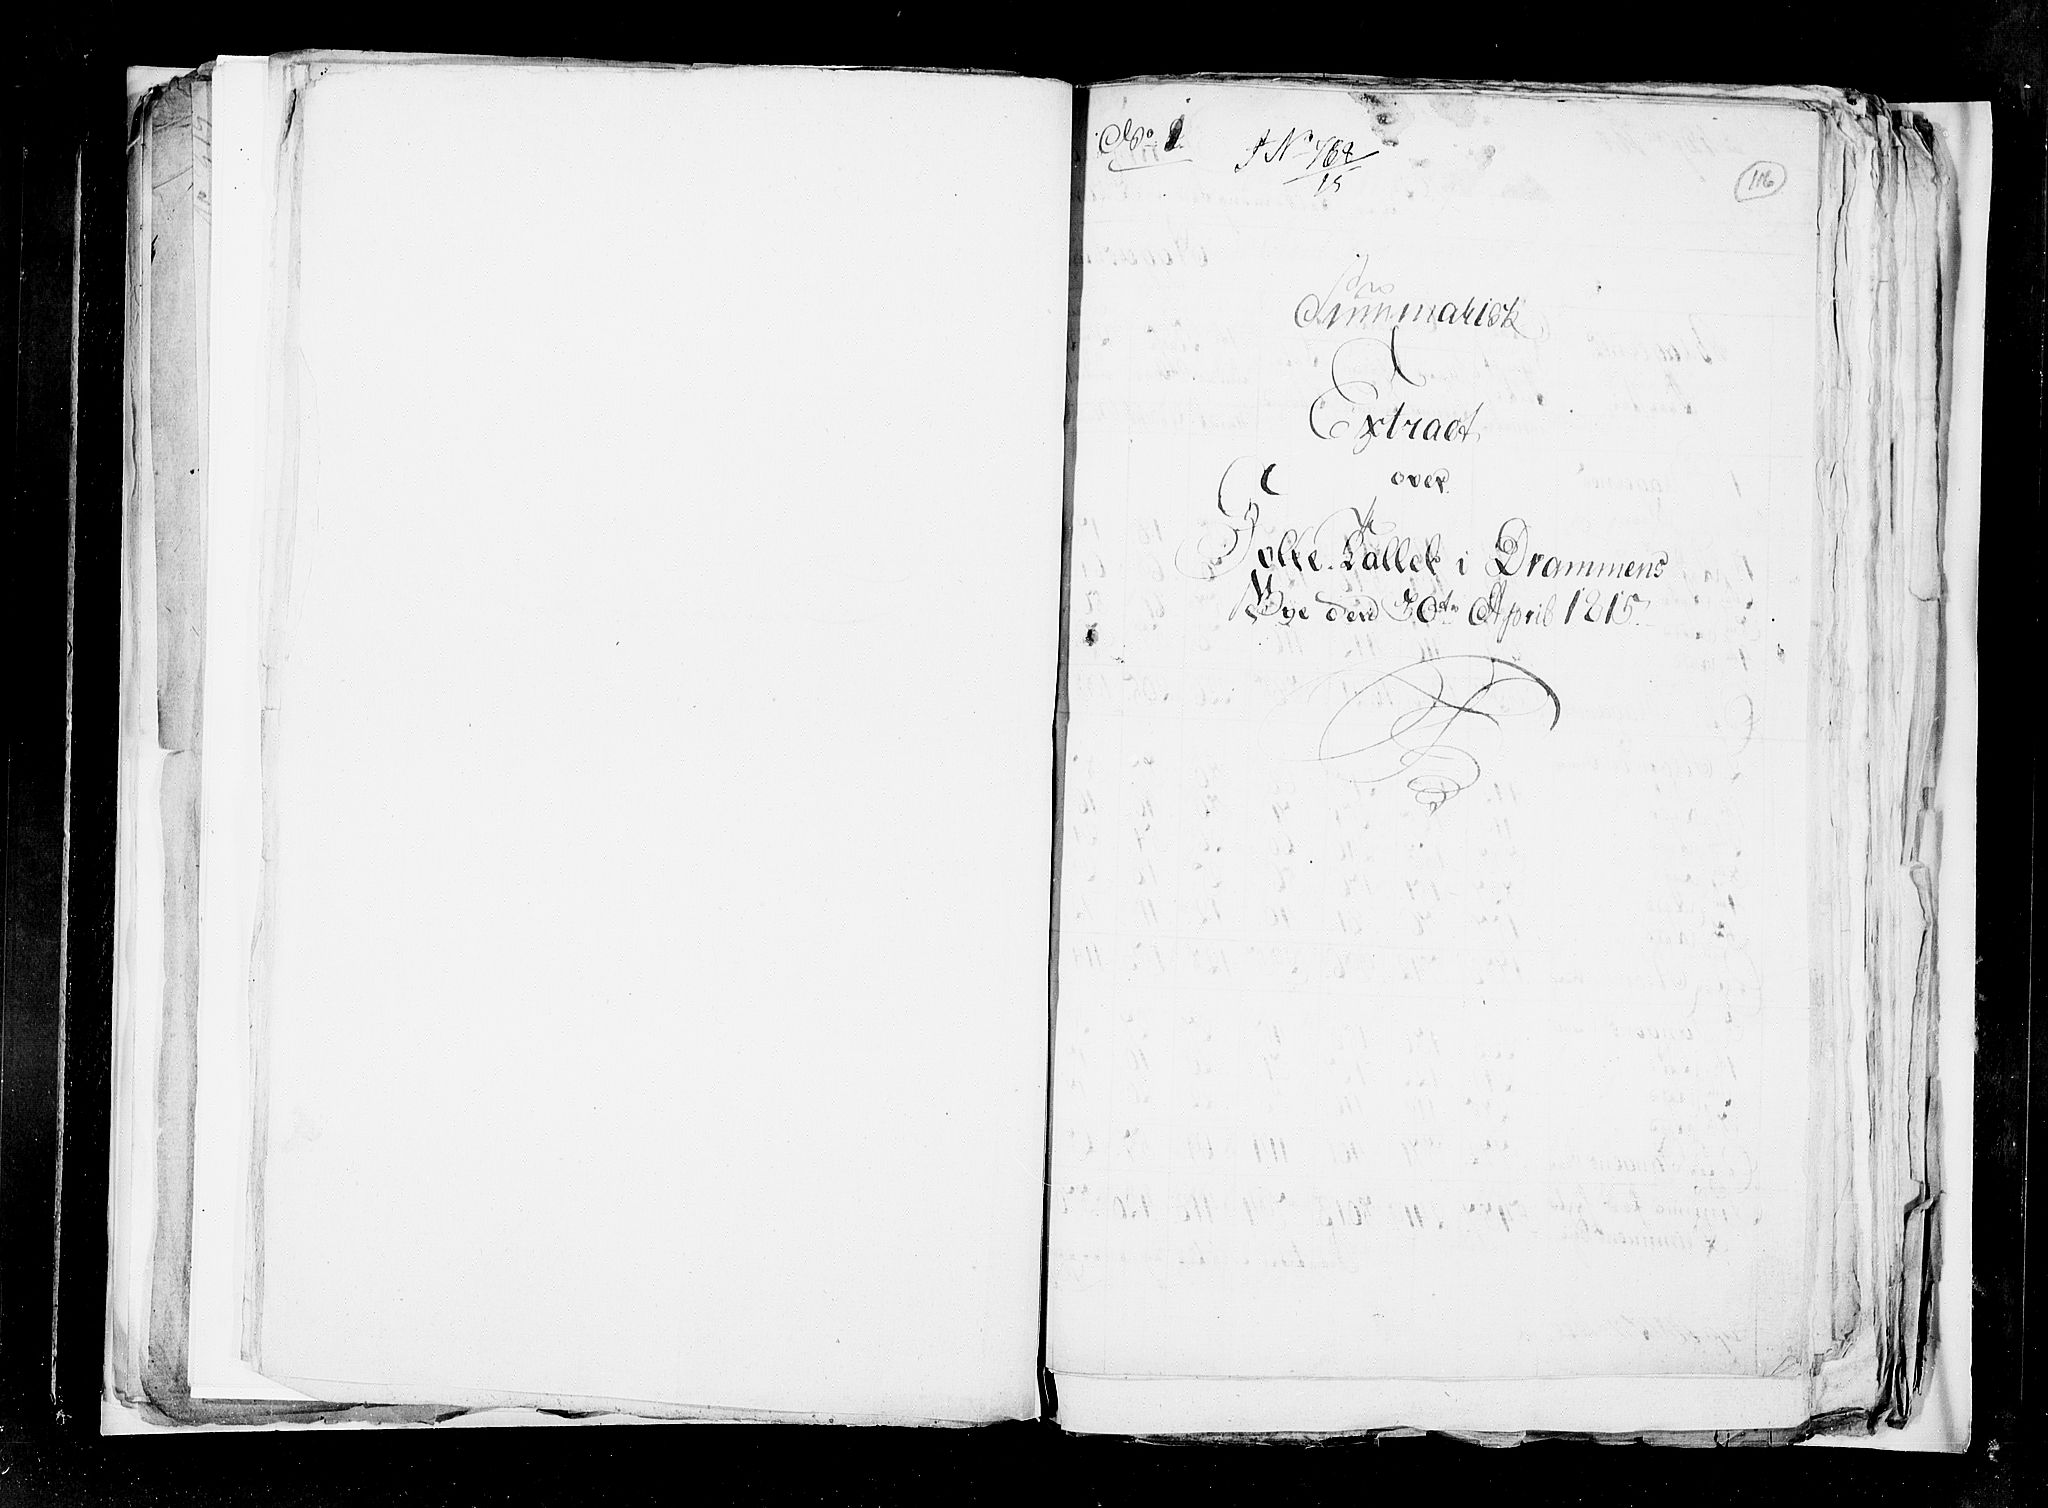 No 1.
J No 768/15
116
Summarisk
Extract
over
Folke-Tallet i Drammens
Bye den 30te April 1815.